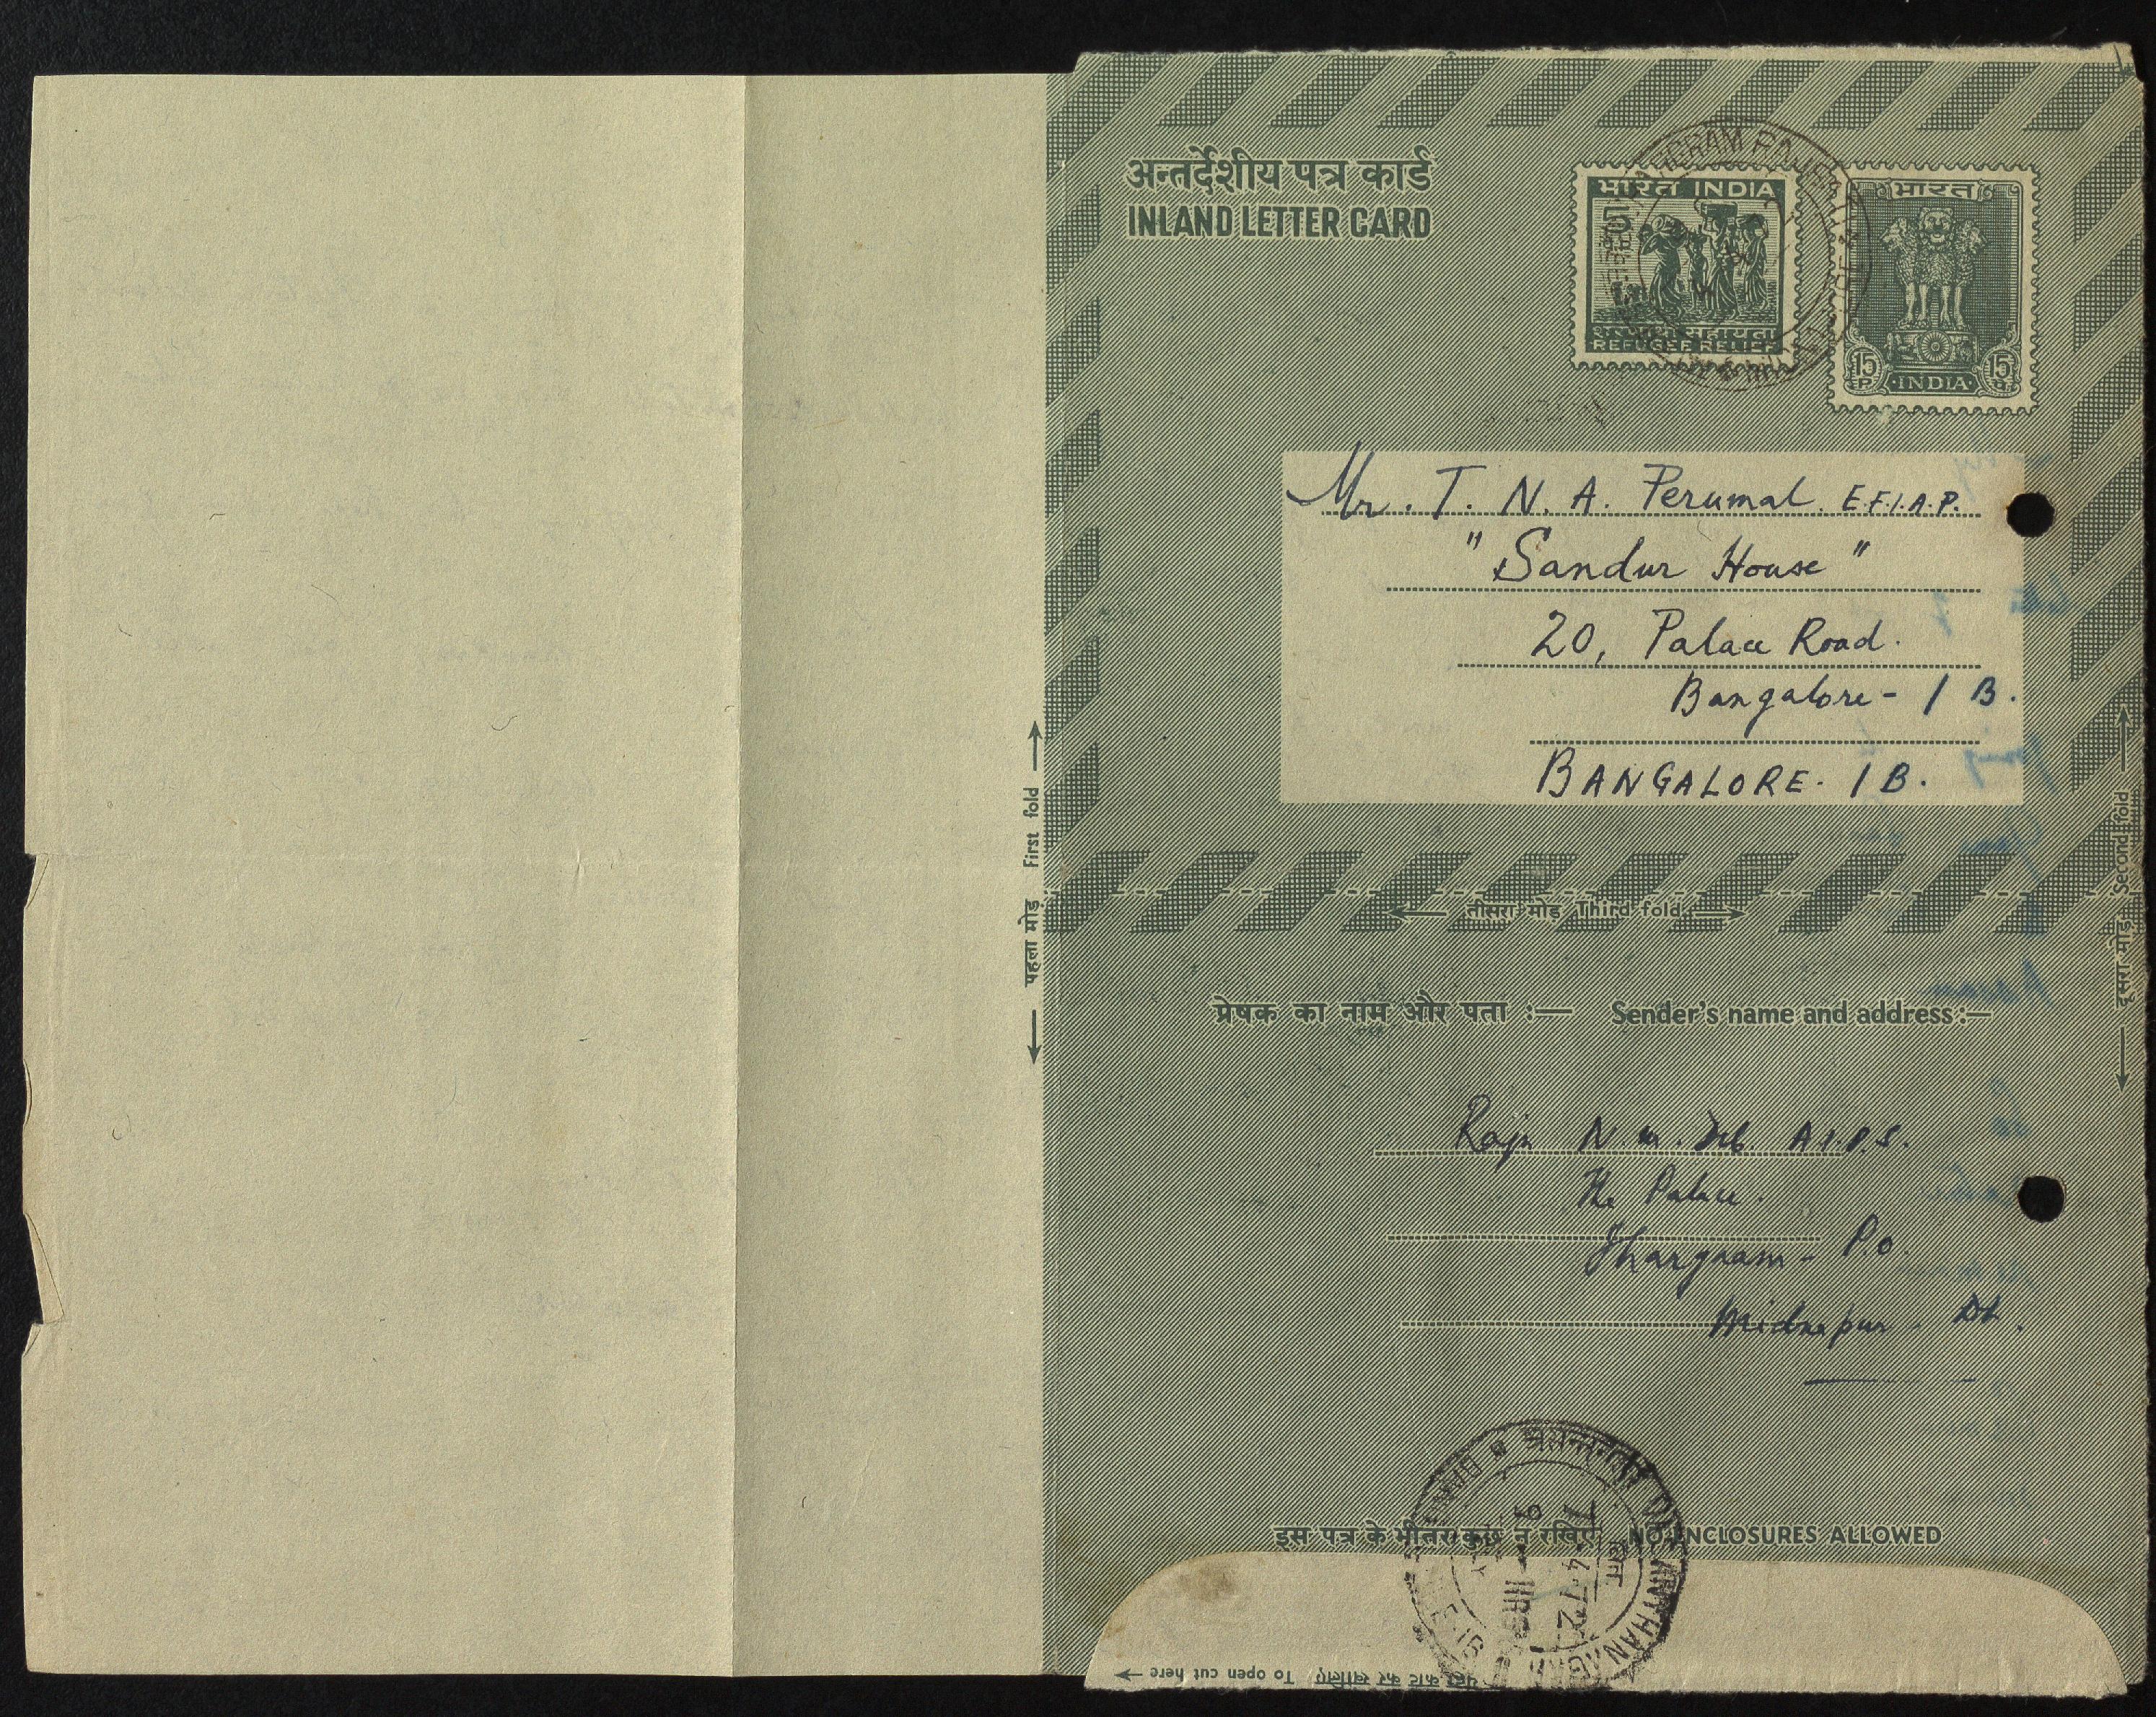 अन्तर्देशीय पत्र कार्ड
INLAND LETTER CARD
भारत INDIA
5
शरणार्थी सहायता
REFUGEE RELIEF
भारत
15 P. INDIA 15 पै.
Mr. T. N. A. Perumal. E.F.I.A.P.
"Sandur House"
20, Palace Road.
Bangalore - 1 B.
BANGALORE. 1 B.
पहला मोड़ First fold
दूसरा मोड़ Second fold
तीसरा मोड़ Third fold
प्रेषक का नाम और पता :— Sender's name and address :—
Raja N. M. Deb. A.I.P.S.
The Palace.
Jhargram - P.O.
Midnapur - Dt.
इस पत्र के भीतर कुछ न रखिए NO ENCLOSURES ALLOWED
4-72
To open cut here